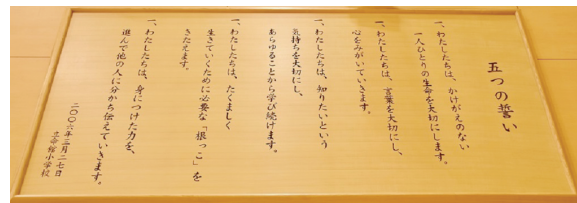 五つの誓い
一、わたしたちは、かけがえのない
一人ひとりの生命を大切にします。
一、わたしたちは、言葉を大切にし、
心をみがいていきます。
一、わたしたちは、知りたいという
気持ちを大切にし、
あらゆることから学び続けます。
一、わたしたちは、たくましく
生きていくために必要な「根っこ」を
きたえます。
一、わたしたちは、身につけた力を、
進んで他の人に分かち伝えていきます。
二〇〇六年三月二七日
立命館小学校